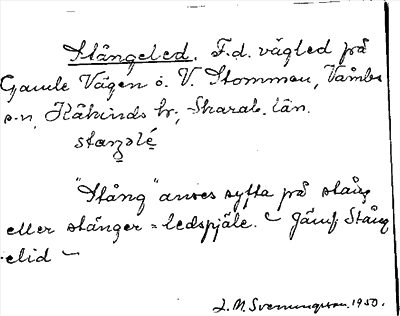 Stångeled. F.d. vägled på
Gamle Vägen o. V. Stommen, Våmbs
s-n, Kåkinds hr, Skarab. län.
"Stång" anses syfta på stång
eller stänger = ledspjäle. ~ Jämf. Stång
elid ~
L. M. Svenungsson. 1950.